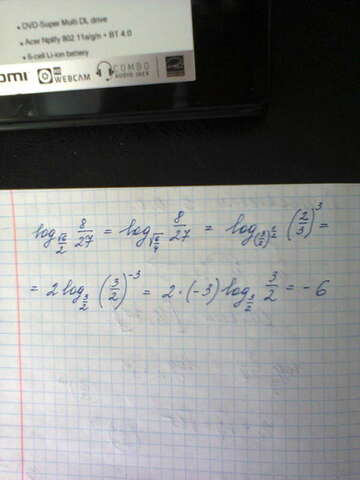 • DVD-Super Multi DL drive
• Acer Nplify 802.11a/g/n + BT 4.0
• 6-cell Li-ion battery
HD WEBCAM
COMBO AUDIO JACK
log_{\frac{\sqrt{6}}{2}} \frac{8}{27} = log_{\sqrt{\frac{6}{4}}} \frac{8}{27} = log_{(\frac{3}{2})^{\frac{1}{2}}} (\frac{2}{3})^3 =
= 2 log_{\frac{3}{2}} (\frac{3}{2})^{-3} = 2 \cdot (-3) log_{\frac{3}{2}} \frac{3}{2} = -6